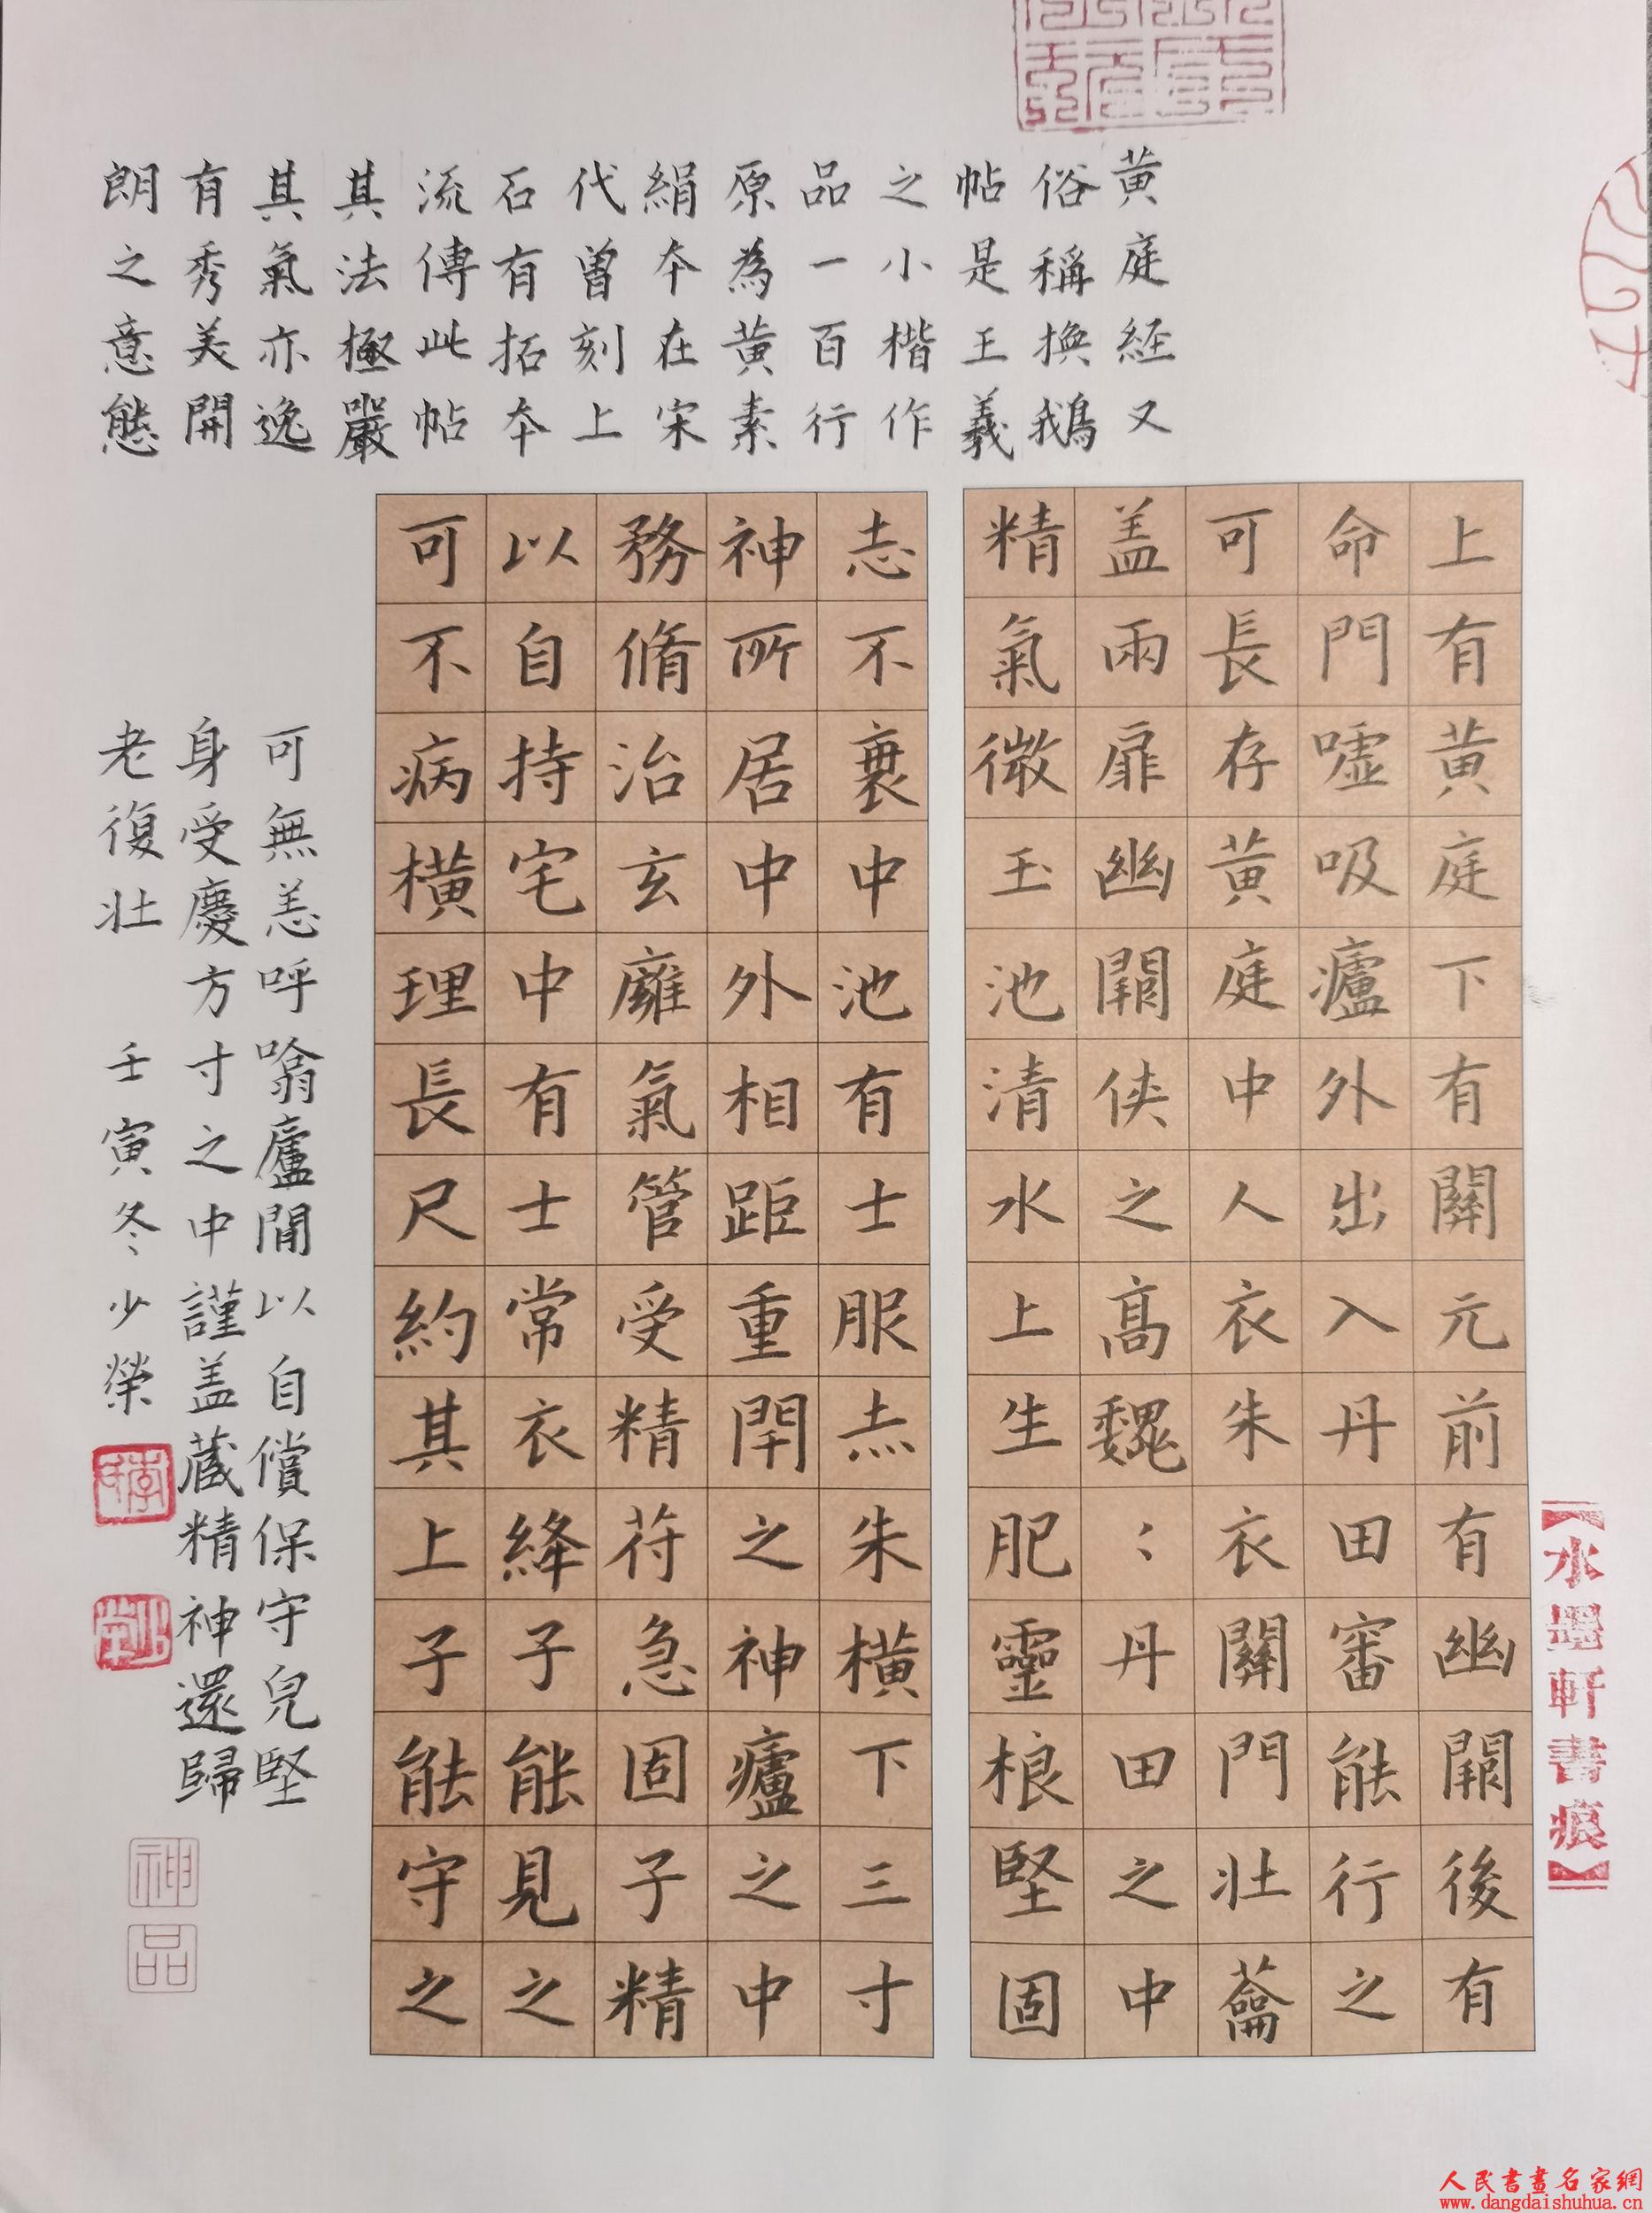 黄庭経又
俗稱換鵝
帖是王羲
之小楷作
品一百行
原為黄素
絹本在宋
代曽刻上
石有拓本
流傳此帖
其法極嚴
其氣亦逸
有秀美開
朗之意態
上有黄庭下有關元前有幽闕後有
命門噓吸廬外出入丹田審能行之
可長存黄庭中人衣朱衣關門壯蘥
盖兩扉幽闕俠之高魏〻丹田之中
精氣微玉池清水上生肥靈根堅固
志不衰中池有士服赤朱橫下三寸
神所居中外相距重閇之神廬之中
務脩治玄廱氣管受精符急固子精
以自持宅中有士常衣絳子能見之
可不病橫理長尺約其上子能守之
可無恙呼噏廬間以自償保守皃堅
身受慶方寸之中謹盖藏精神還歸
老復壯 壬寅冬少榮
神品
【水墨軒書痕】
人民書畫名家網
www.dangdaishuhua.cn